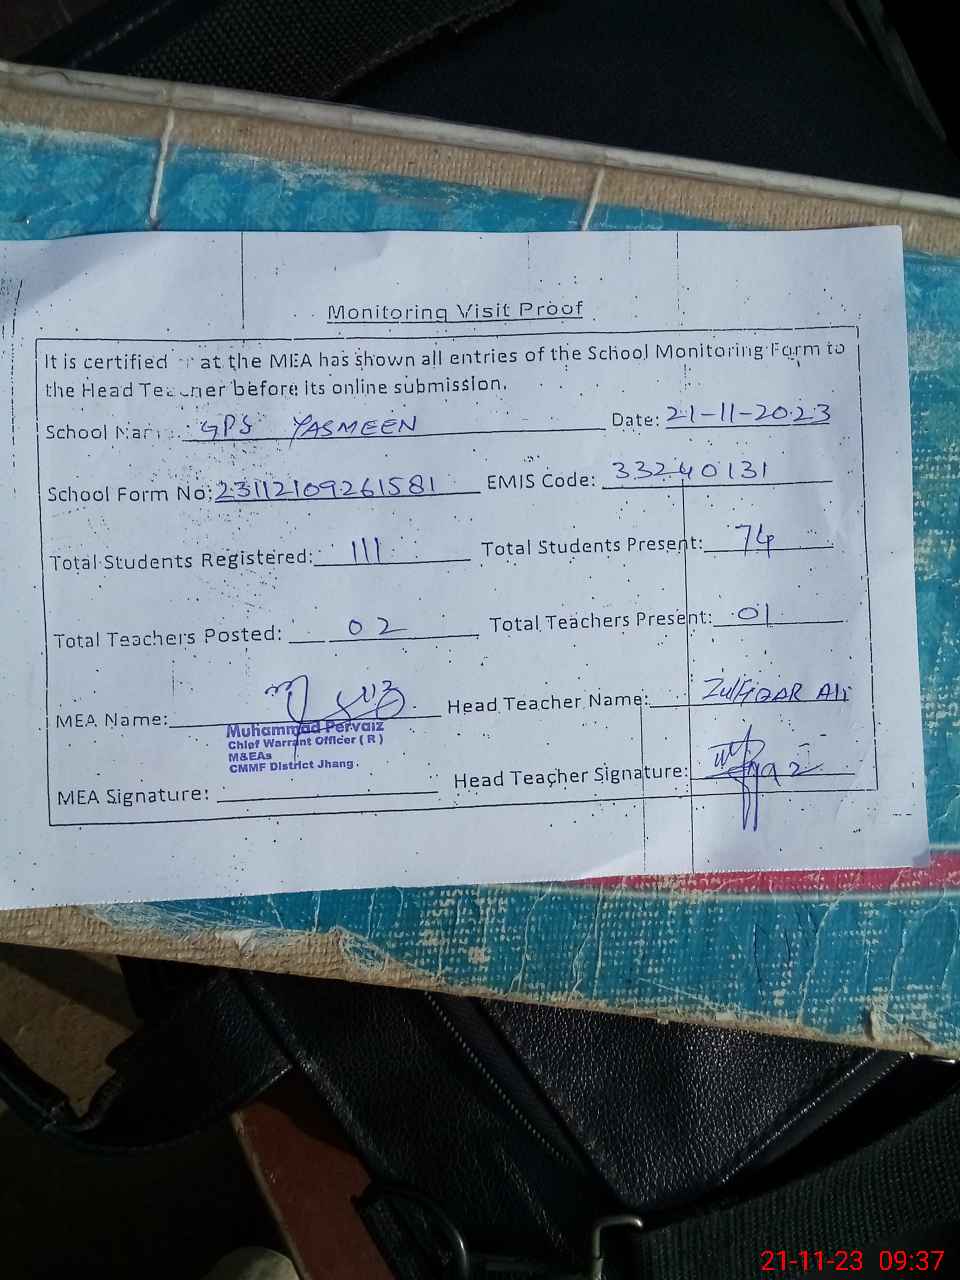 Monitoring Visit Proof
It is certified at the MEA has shown all entries of the School Monitoring Form to
the Head Teacher before its online submission.
School Name: GPS YASMEEN Date: 21-11-2023
School Form No: 23112109261581 EMIS Code: 33240131
Total Students Registered: 111 Total Students Present: 74
Total Teachers Posted: 02 Total Teachers Present: 01
MEA Name: Head Teacher Name: Zulfiqar Ali
Muhammad Pervaiz
Chief Warrant Officer ( R )
M&EAs
CMMF District Jhang.
MEA Signature: Head Teacher Signature:
21-11-23 09:37